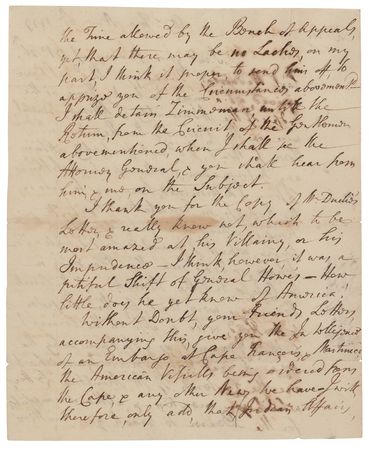 the Time allowed by the Bench of Appeals,
yet, that there may be no Laches, on my
part, I think it proper to send him off, to
apprize you of the Circumstances abovement.d
I shall detain Zimmeman untill the
Return, from the Circuit of the Gentlemen
abovementioned when I shall see the
Attorney General, & you shall hear from
him & me on the Subject.
I thank you for the Copy of Mr Duchés
Letter & really know not, which to be
most amazed at, his Villainy, or his
Impudence – I think, however it was a
pitiful Shift of General Howes – How
little does he yet know of America!
Without Doubt, your Friends Letters,
accompanying this, give you the Intelligence
of an Embargo at Cape François, & Martinico
the American Vessells being ordered from
the Cape, & any other News we have – I will
therefore, only add that, Indian Affairs,